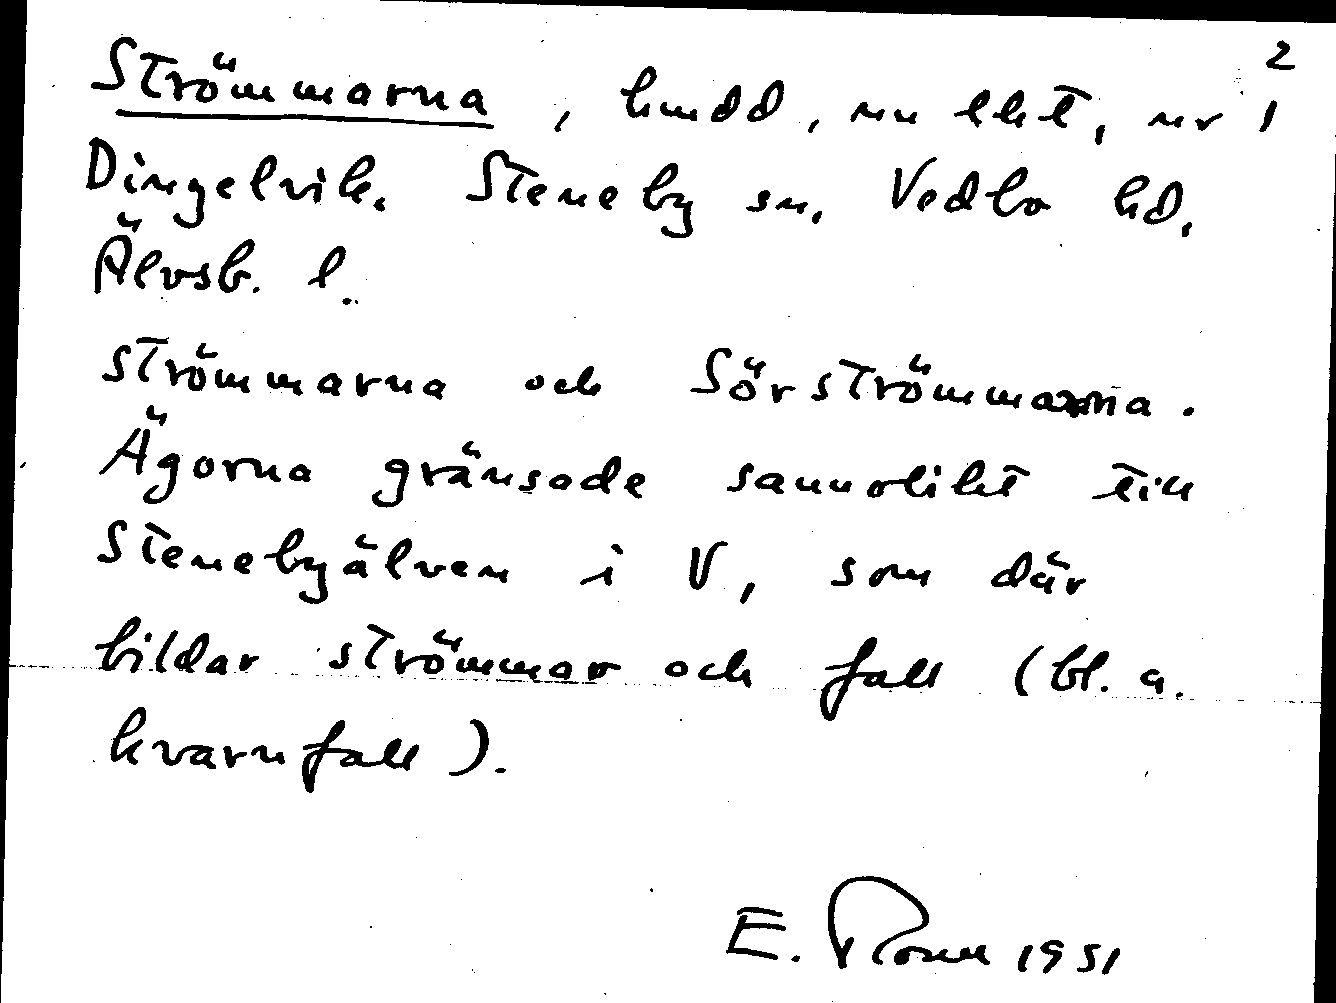 2
Strömmarna, hmdd, nu lht, nr 1
Dingelvik. Steneby sn. Vedbo hd.
Älvsb. l.
Strömmarna och Sörströmmarna.
Ägorna gränsade sannolikt till
Stenebyälven i V, som där
bildar strömmar och fall (bl. a.
kvarnfall).
E. 1951